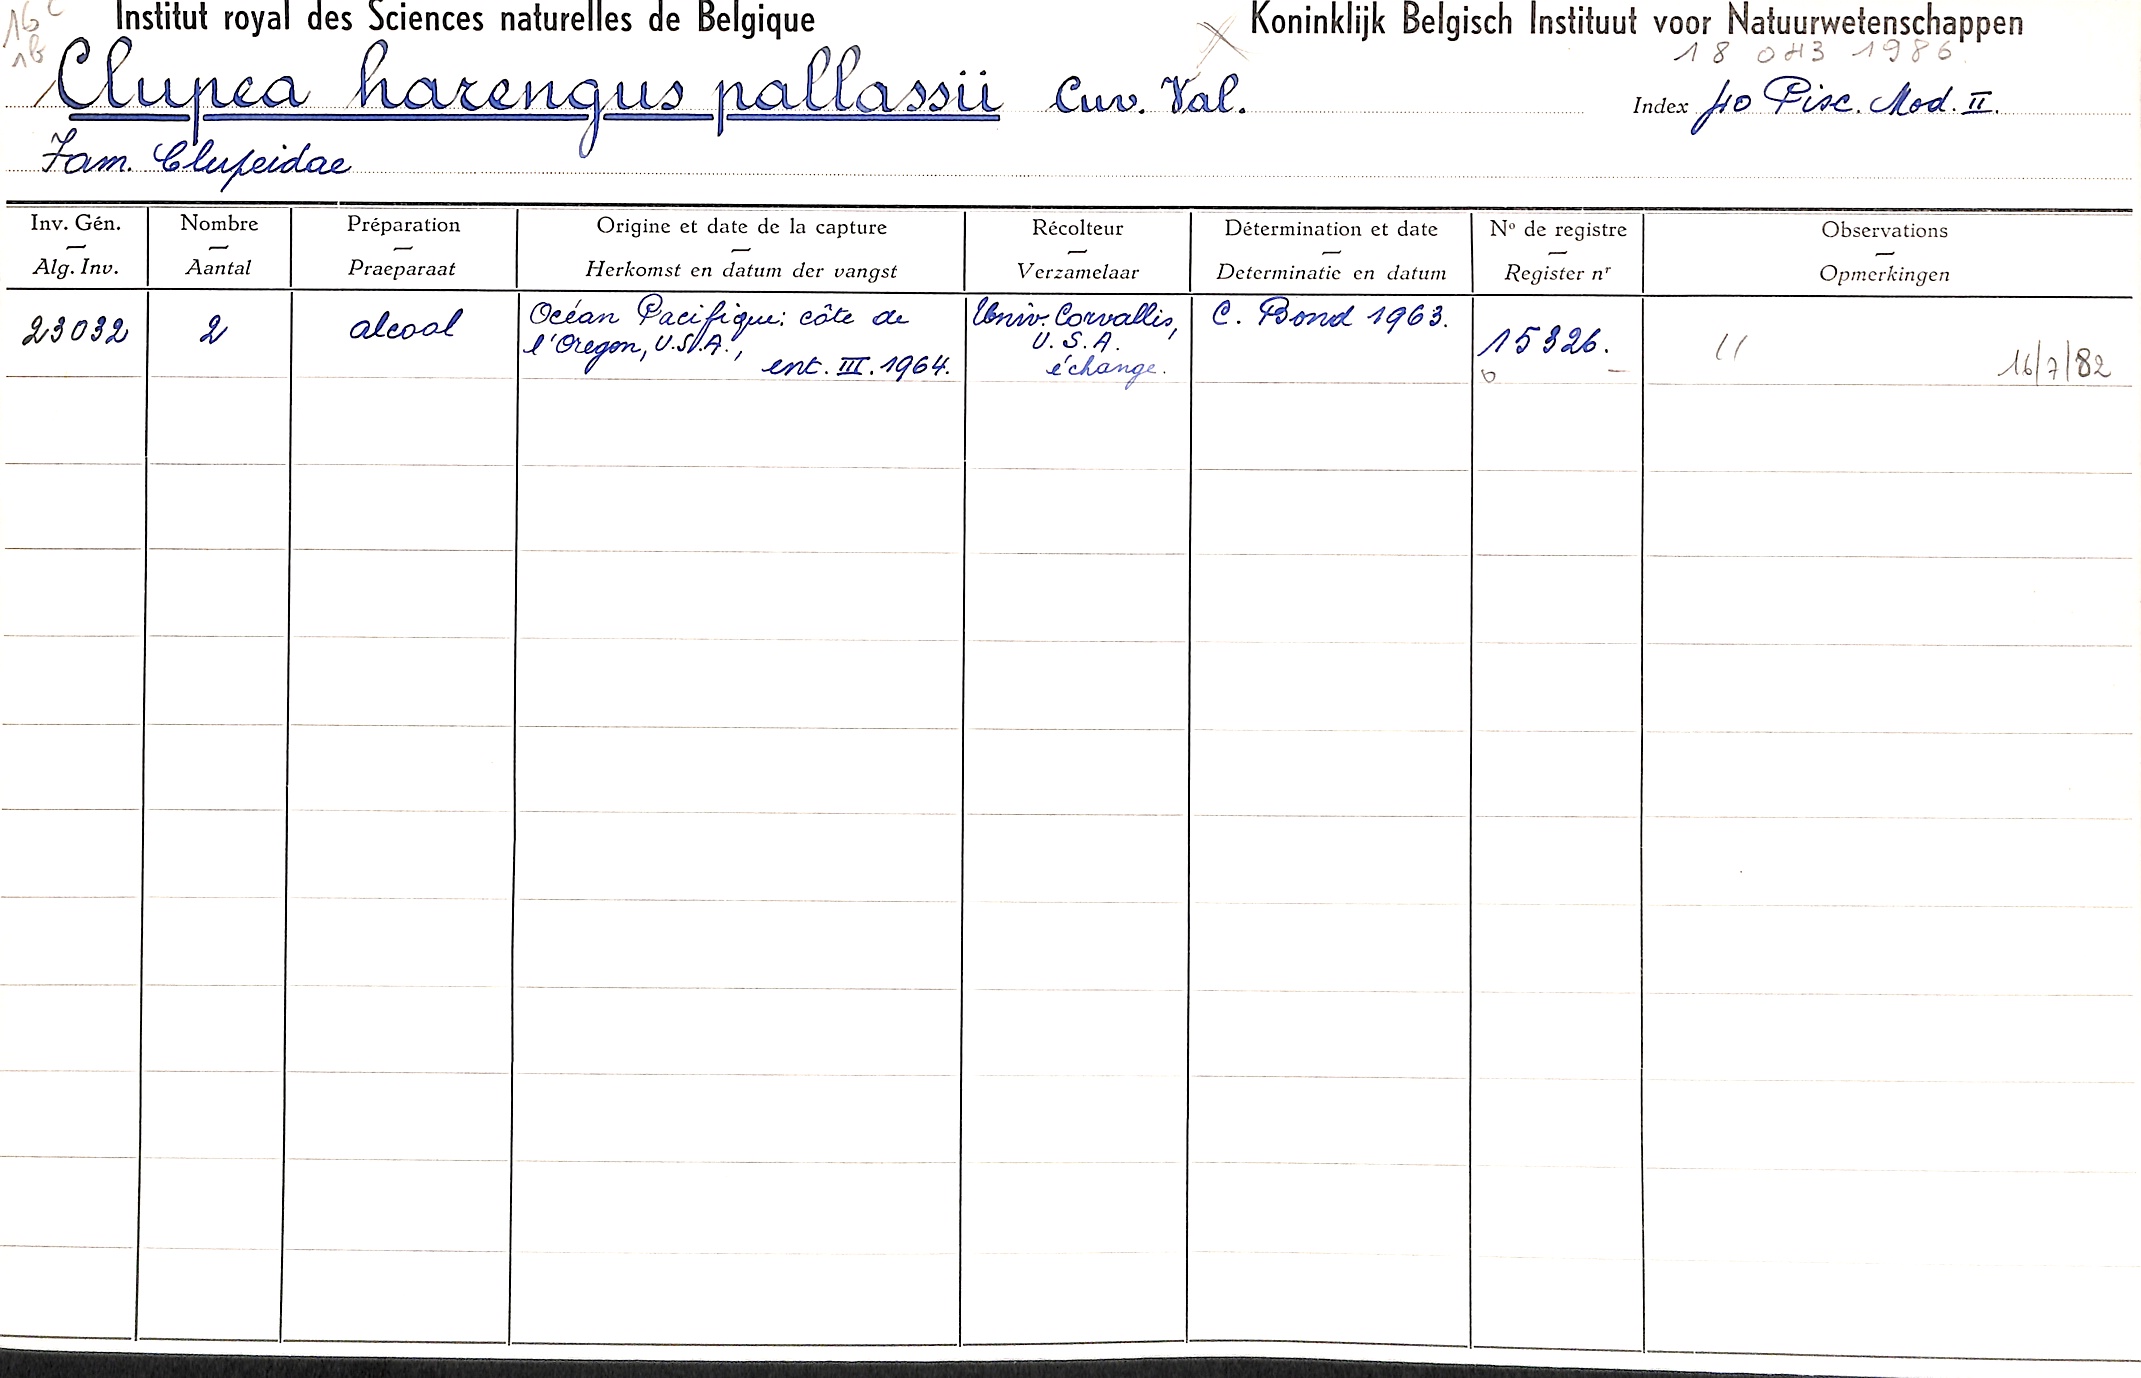 16 c
Institut royal des Sciences naturelles de Belgique
Koninklijk Belgisch Instituut voor Natuurwetenschappen
1b
18 043 1986
Clupea harengus pallassii Cuv. Val.
Index f10 Pisc. Mod. II.
Fam. Clupeidae
Inv. Gén. Nombre Préparation Origine et date de la capture Récolteur Détermination et date Nº de registre Observations
Alg. Inv. Aantal Praeparaat Herkomst en datum der vangst Verzamelaar Determinatie en datum Register nʳ Opmerkingen
23032 2 alcool
Océan Pacifique: côte de
l'Oregon, U.S.A.,
ent. III. 1964.
Univ. Corvallis,
U. S. A.
échange.
C. Bond 1963.
15326.
//
16/7/82